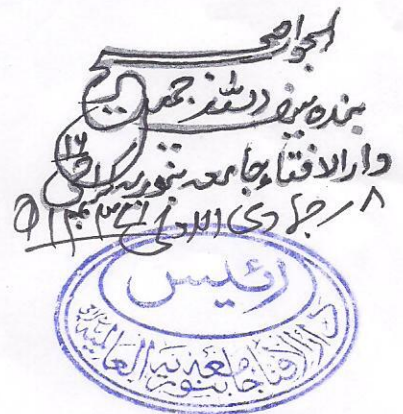 الجواب صحیح
بندہ سیف اللہ جمیل
دارالافتاء جامعہ بنوریہ کراچی ۱۶
۸ جمادی الاولیٰ
رئیس
دارالافتاء جامعہ بنوریہ العالمیہ